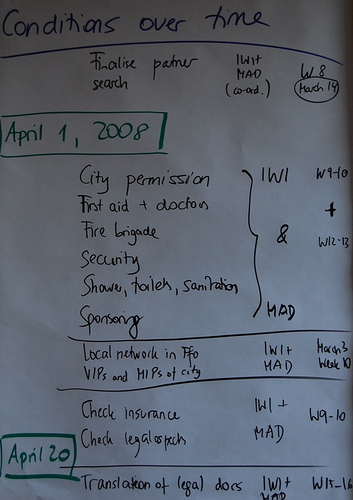 Conditions over time
Finalise partner search IWI+ MAD (co-ord.) W8 March 14
April 1, 2008
City permission IWI W9-10
First aid + doctors +
Fire brigade & W12-13
Security
Shower, toilets, sanitation
Sponsoring MAD
Local network in Ffo IWI+ March 3
VIPs and MIPs of city MAD Week 10
Check insurance IWI + W9-10
Check legal aspects MAD
April 20
Translation of legal docs IWI+ MAD W15-16